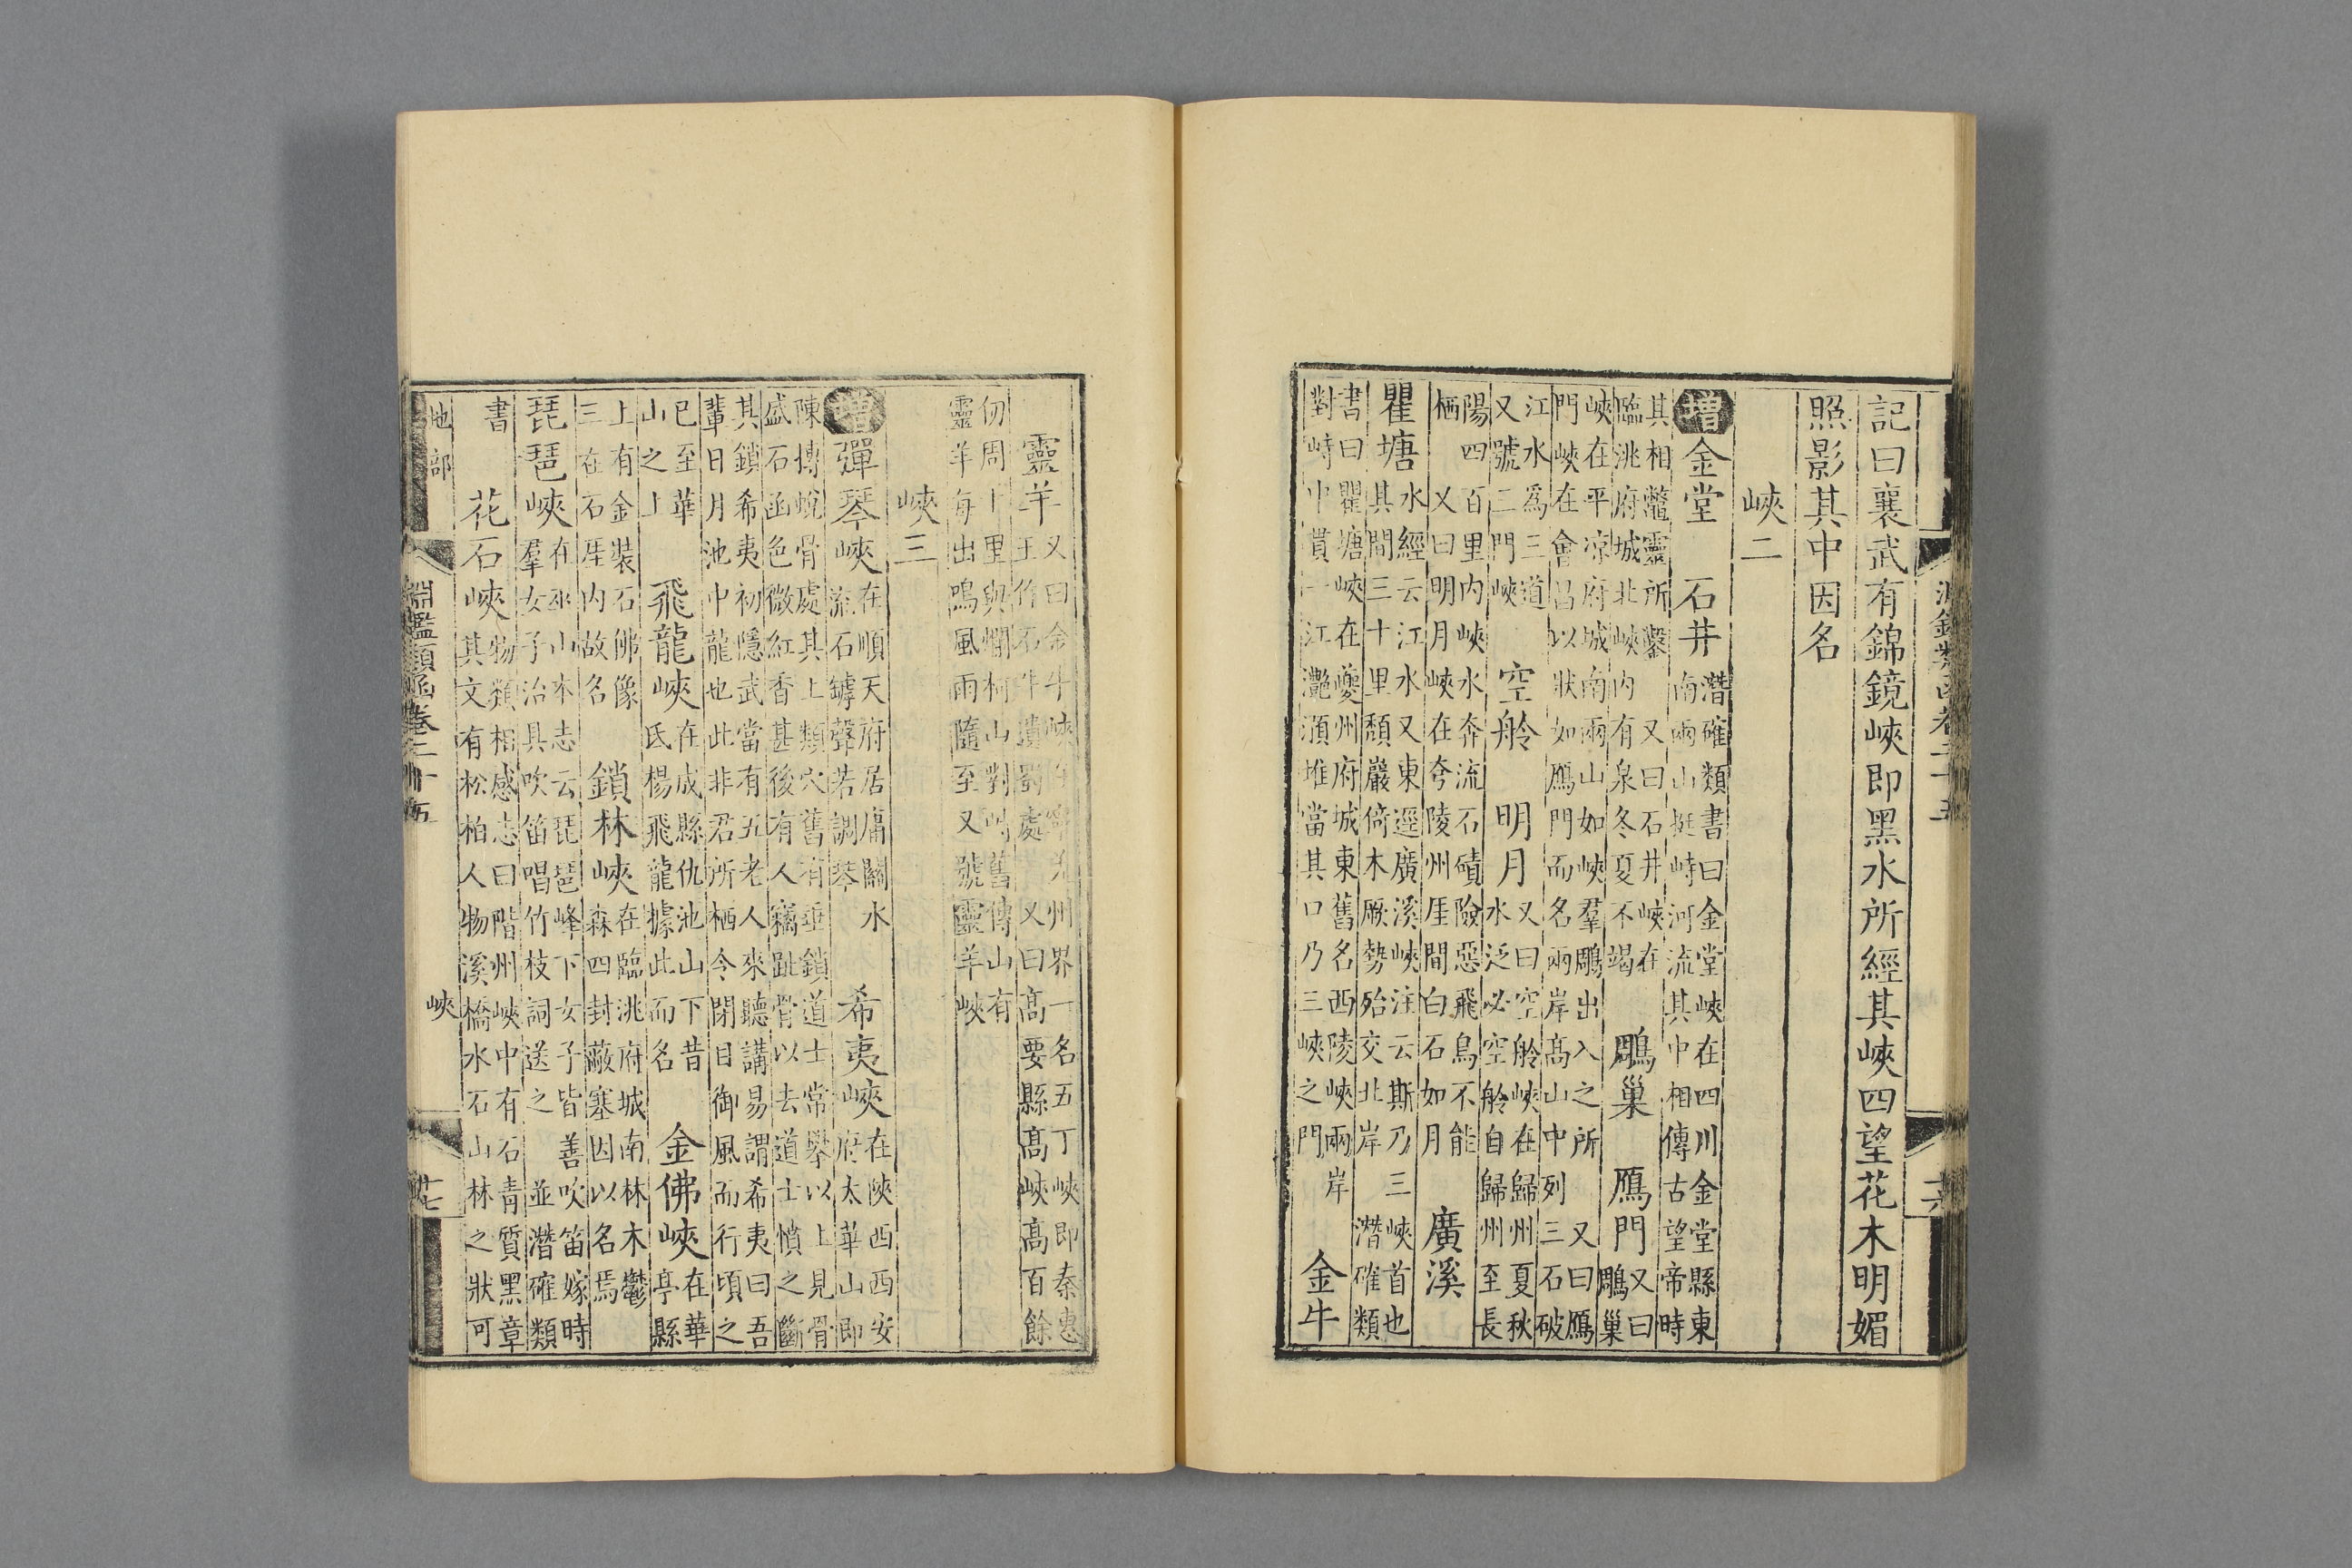 淵鑑類函卷二十五
記曰襄武有錦鏡峽即黑水所經其峽四望花木明媚
照影其中因名
峽二
增金堂 石井潛確類書曰金堂峽在四川金堂縣東南兩山挺峙河流其中相傳古望帝時
其相鼈靈所鑿 又曰石井峽在臨洮府城北峽內有泉冬夏不竭 鵰巢 鴈門又曰鵰巢
峽在平凉府城南兩山如峽羣鵰出入之所 又曰鴈門峽在會昌以狀如鴈門而名兩岸高山中列三石破
江水爲三道又號三門峽 空舲 明月又曰空舲峽在歸州夏秋水泛必空舲自歸州至長
陽四百里內峽水奔流石磧險惡飛鳥不能栖 又曰明月峽在夸陵州厓間白石如月 廣溪
瞿塘水經云江水又東逕廣溪峽注云斯乃三峽首也其間三十里頹巖倚木厥勢殆交北岸 潛確類
書曰瞿塘峽在夔州府城東舊名西陵峽兩岸對峙中貫一江灩澦堆當其口乃三峽之門 金牛
靈羊又曰金牛峽在寧羌州界一名五丁峽即秦惠王作石牛遺蜀處 又曰高要縣高峽高百餘
仞周十里與爛柯山對峙舊傳山有靈羊每出鳴風雨隨至又號靈羊峽
峽三
增彈琴峽在順天府居庸關水流石罅聲若調琴 希夷峽在陝西西安府太華山即
陳摶蛻骨處其上類穴舊有垂鎖道士常攀以上見骨盛石函色微紅香甚後有人竊趾骨以去道士憤之斷
其鎖希夷初隱武當有五老人來聽講易謂希夷曰吾輩日月池中龍也此非君所栖今閉目御風而行頃之
已至華山之上 飛龍峽在成縣仇池山下昔氐楊飛龍據此而名 金佛峽在華亭縣
上有金裝石佛像三在石厓內故名 鎖林峽在臨洮府城南林木鬱森四封蔽塞因以名焉
琵琶峽在巫山本志云琵琶峰下女子皆善吹笛嫁時羣女子治具吹笛唱竹枝詞送之 並潛確類
書 花石峽物類相感志曰階州峽中有石青質黑章其文有松柏人物溪橋水石山林之狀可
地部 淵鑑類函卷二十五 峽 十七